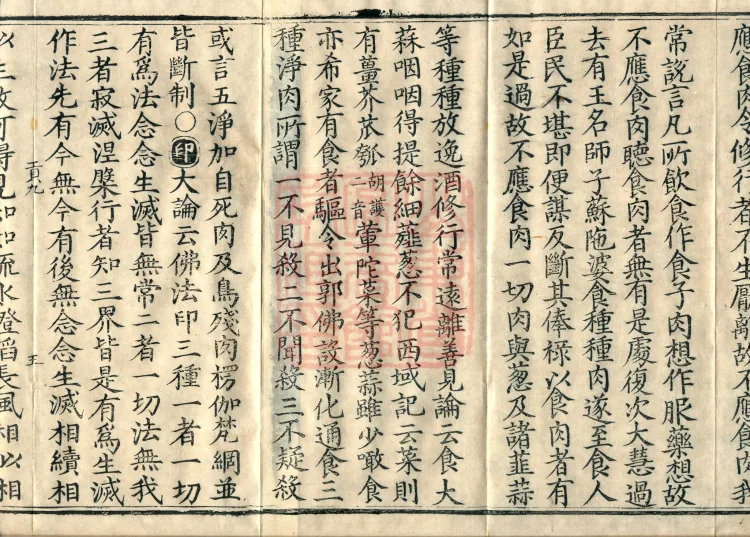 應食肉令修行者不生厭離故不應食肉我
常說言凡所飲食作食子肉想作服藥想故
不應食肉聽食肉者無有是處復次大慧過
去有王名師子蘇陁婆食種種肉遂至食人
臣民不堪即便謀反斷其俸祿以食肉者有
如是過故不應食肉一切肉與葱及諸韮蒜
等種種放逸酒修行常遠離善見論云食大
蒜咽咽得提餘細薤葱不犯西域記云菜則
有薑芥苽瓠胡護二音葷陀菜等葱蒜雖少噉食
亦希家有食者驅令出郭佛設漸化通食三
種淨肉所謂一不見殺二不聞殺三不疑殺
或言五淨加自死肉及鳥殘肉楞伽梵網並
皆斷制○印大論云佛法印三種一者一切
有為法念念生滅皆無常二者一切法無我
三者寂滅涅槃行者知三界皆是有為生滅
作法先有今無今有後無念念生滅相續相
貢九
五
以生故可得見知如流水燈焰長風相似相